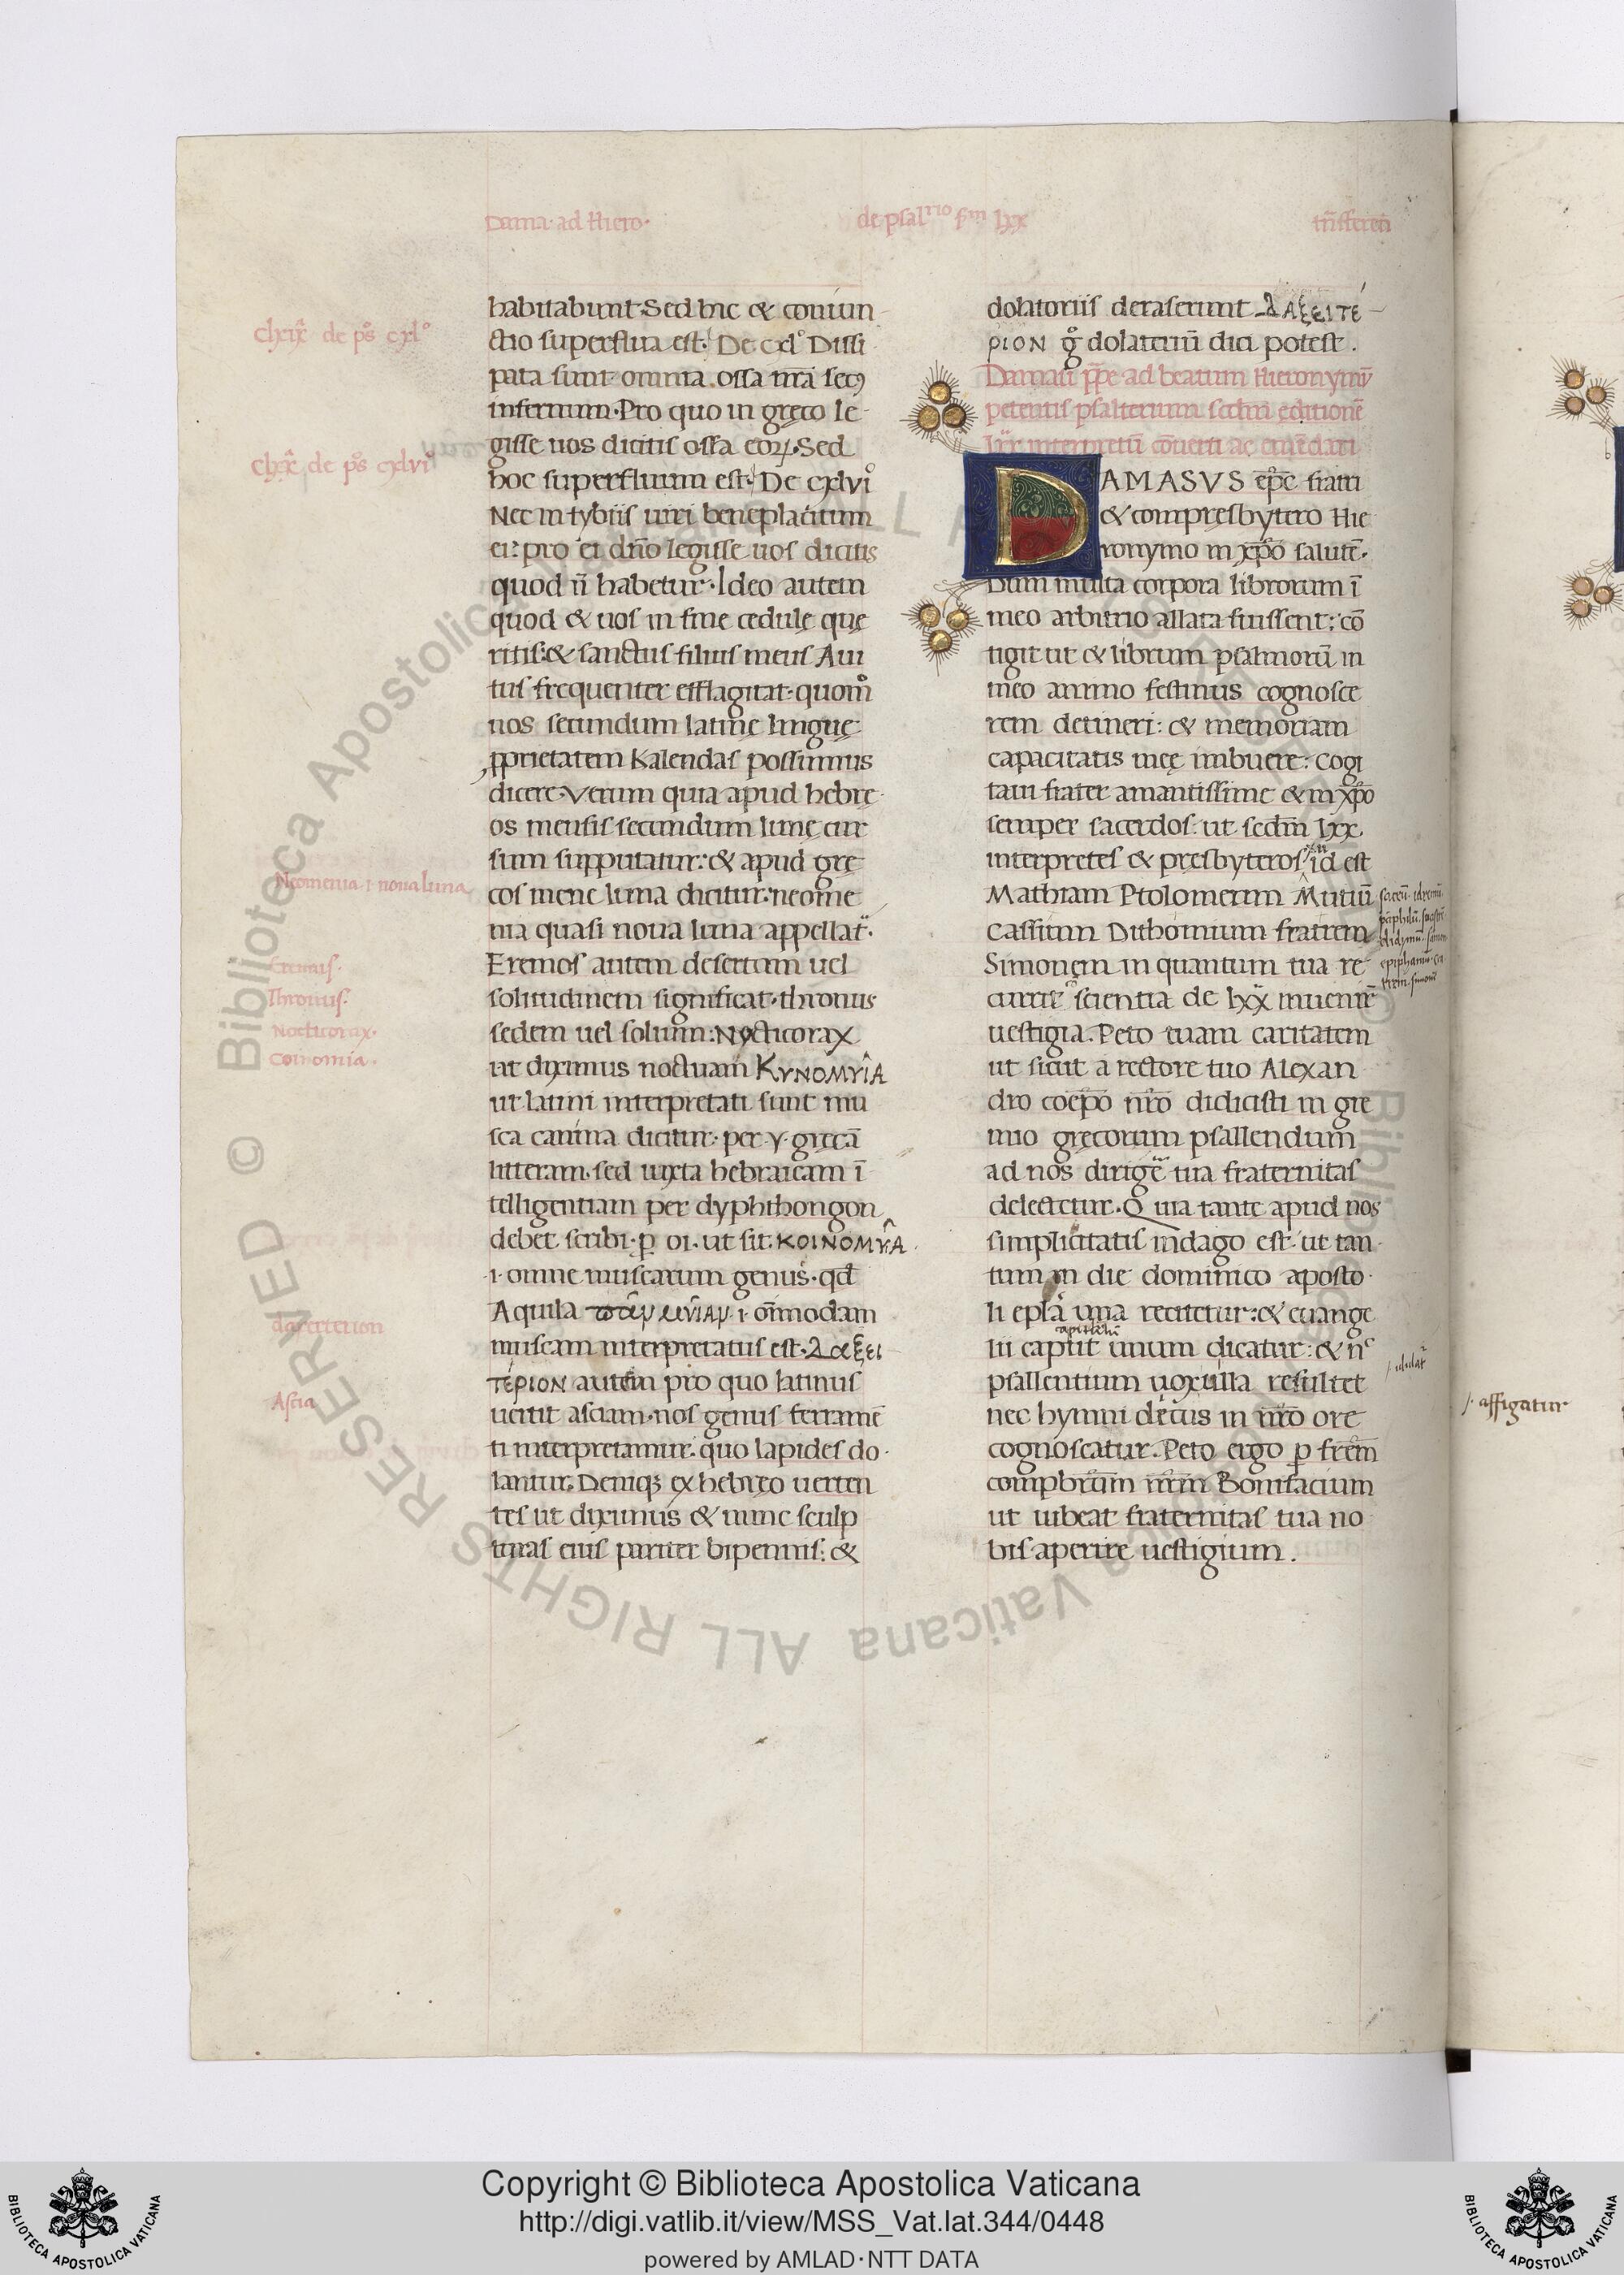 Dama· ad Hiero·
de psal rio sm lxx
habitabunt. Sed hic & coniun-
ctio superflua est. De cxl° Dissi
pata sunt omnia ossa nr̄a sec9
infernum. Pro quo in gręco le-
gisse uos dicitis ossa eorꝝ. Sed
hoc superfluum est. De cxlvi°
Nec in tybiis uiri beneplacitum
ei: pro ei dn̄o legisse uos dicitis
quod n̄ habetur. Ideo autem
quod & uos in fine cedulę quę
ritis: & sanctus filius meus Aui
tus frequenter efflagitat. quom°
uos secundum latinę linguę
ꝓprietatem Kalendas possimus
dicere. Verum quia apud hebrę-
os mensis secundum lunę cur
sum supputatur: & apud grę
cos mene luna dicitur: neome
nia quasi noua luna appellat̄.
Eremos autem desertum uel
solitudinem significat. thronus
sedem uel solium: Nycticorax
ut diximus noctuam ΚΥΝΟΜΥΙΑ
ut latini interpretati sunt mu
sca canina dicitur: per y gręcā
litteram. sed iuxta hebraicam ī
telligentiam per dyphthongon
debet scribi. ꝑ oi. ut sit. ΚΟΙΝΟΜΥΙΑ.
·i· omne muscarum genus. qd̄
Aquila ·i· om̄modam
muscam interpretatus est. λαξει
ΤΕΡΙΟΝ autem pro quo latinus
uertit asciam. nos genus ferramē
ti interpretamur. quo lapides do-
lantur. Deniqꝫ ex hebręo uerten
tes ut diximus & nunc sculp
turas eius pariter bipennis: &
clxix de ps° cxl°
de ps° cxlvi°
Neomenia ·i· noua luna
Eremus.
Thronus.
Nocticorax.
Coinomia.
daxerterion
Ascia
dolatoriis deraserunt. λΑξΕΙΤΕ-
ΡΙΟΝ g° dolatoriū dici potest.
Damasi pp̄e ad beatum Hieronymū
petentis psalterium scdm editionē
lxx interpretū cōuerti ac emēdari
DAMASVS ep̄c fratri
& compresbytero Hie
ronymo in xp̄o salutē.
Dum multa corpora librorum ī
meo arbitrio allata fuissent: cō
tigit ut & librum psalmorū in
meo animo festinus cognosce
rem detineri: & memoriam
capacitatis meę imbuere: Cogi
taui frater amantissime & in xp̄o
semper sacerdos. ut scdm lxx
interpretes & presbyteros id est
Mathiam Ptolomeum Mutiū
Cassium Dithomium fratrem
Simonem in quantum tua re
currit scientia de lxx inuenire
uestigia. Peto tuam caritatem
ut sicut a rectore tuo Alexan
dro coep̄o nr̄o didicisti in gre
mio gręcorum psallendum
ad nos dirigē tua fraternitas
delectetur. Quia tante apud nos
simplicitatis indago est. ut tan
tum in die dominico aposto
li epl̄a una recitetur: & euange
lii caput unum dicatur: & n̄c
psallentium uox ulla resultet
nec hymni decus in nr̄o ore
cognoscatur. Peto ergo ꝑ frēm
compbr̄um nr̄m Bonifacium
ut iubeat fraternitas tua no
bis aperire uestigium.
affigatur
© Biblioteca Apostolica Vaticana ALL RIGHTS RESERVED © Biblioteca Apostolica Vaticana ALL RIGHTS RESERVED
Copyright © Biblioteca Apostolica Vaticana
http://digi.vatlib.it/view/MSS_Vat.lat.344/0448
powered by AMLAD·NTT DATA
BIBLIOTECA APOSTOLICA VATICANA
BIBLIOTECA APOSTOLICA VATICANA